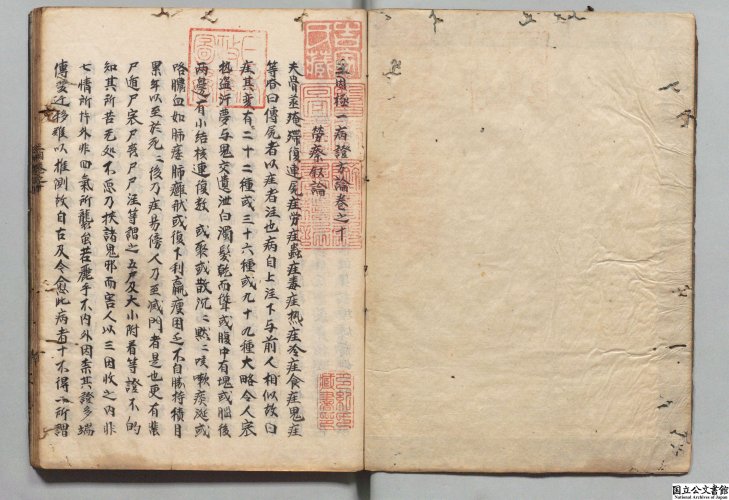 三因極一病證方論卷之十
勞瘵叙論
夫骨蒸殗殜復連尸疰勞疰蟲疰毒疰熱疰冷疰食疰鬼疰
等皆曰傳尸者以疰者注也病自上注下与前人相似故曰
疰其変有二十二種或三十六種或九十九種大略令人寒
熱盗汗夢与鬼交遺泄白濁髮乾而聳或腹中有塊或腦後
兩邊有小結核連復数 或聚或散沉沉默默咳嗽痰涎或
咯膿血如肺痿肺癰状或復下利羸瘦困乏不自勝持積月
累年以至於死死後乃疰易傍人乃至滅門者是也更有蜚
尸遁尸寒尸喪尸尸注等謂之五尸及大小附着等證不的
知其所苦无処不悪乃挾諸鬼邪而害人以三因收之内非
七情所忤外非四氣所襲雖若麗乎不内外因奈其證多端
傳変迁移難以推測故自古及今愈此病者十不得一所謂
国立公文書館
National Archives of Japan